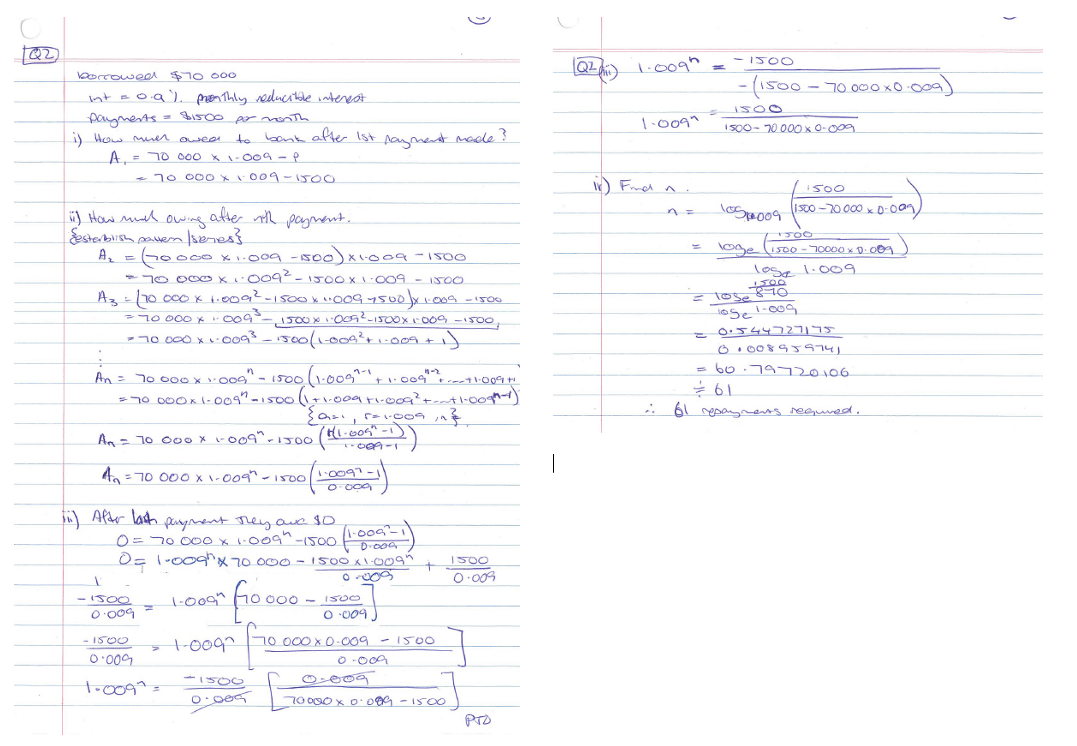 Q2
borrowed $70 000
int = 0.9% monthly reducible interest
payments = $1500 per month
i) How much owed to bank after 1st payment made?
A₁ = 70 000 × 1.009 - P
= 70 000 × 1.009 - 1500
ii) How much owing after nth payment.
{establish pattern/series}
A₂ = (70 000 × 1.009 - 1500) × 1.009 - 1500
= 70 000 × 1.009² - 1500 × 1.009 - 1500
A₃ = (70 000 × 1.009² - 1500 × 1.009 - 1500) × 1.009 - 1500
= 70 000 × 1.009³ - 1500 × 1.009² - 1500 × 1.009 - 1500
= 70 000 × 1.009³ - 1500(1.009² + 1.009 + 1)
⋮
An = 70 000 × 1.009ⁿ - 1500(1.009ⁿ⁻¹ + 1.009ⁿ⁻² + ... + 1.009 + 1
= 70 000 × 1.009ⁿ - 1500(1 + 1.009 + 1.009² + ... + 1.009ⁿ⁻¹)
{a=1, r=1.009, n}
An = 70 000 × 1.009ⁿ - 1500(1(1.009ⁿ - 1)/1.009 - 1)
An = 70 000 × 1.009ⁿ - 1500(1.009ⁿ - 1/0.009)
iii) After last payment they owe $0
0 = 70 000 × 1.009ⁿ - 1500(1.009ⁿ - 1/0.009)
0 = 1.009ⁿ × 70 000 - 1500 × 1.009ⁿ/0.009 + 1500/0.009
-1500/0.009 = 1.009ⁿ [70 000 - 1500/0.009]
-1500/0.009 = 1.009ⁿ [70 000 × 0.009 - 1500/0.009]
1.009ⁿ = -1500/0.009 [0.009/70 000 × 0.009 - 1500]
PTO
Q2 iii) 1.009ⁿ = -1500/-(1500 - 70 000 × 0.009)
1.009ⁿ = 1500/1500 - 70 000 × 0.009
iv) Find n.
n = log₁.₀₀₉ (1500/1500 - 70 000 × 0.009)
= logₑ (1500/1500 - 70000 × 0.009)/logₑ 1.009
= logₑ 1500/870/logₑ 1.009
= 0.544727175/0.008959741
= 60.79720106
≑ 61
∴ 61 repayments required.